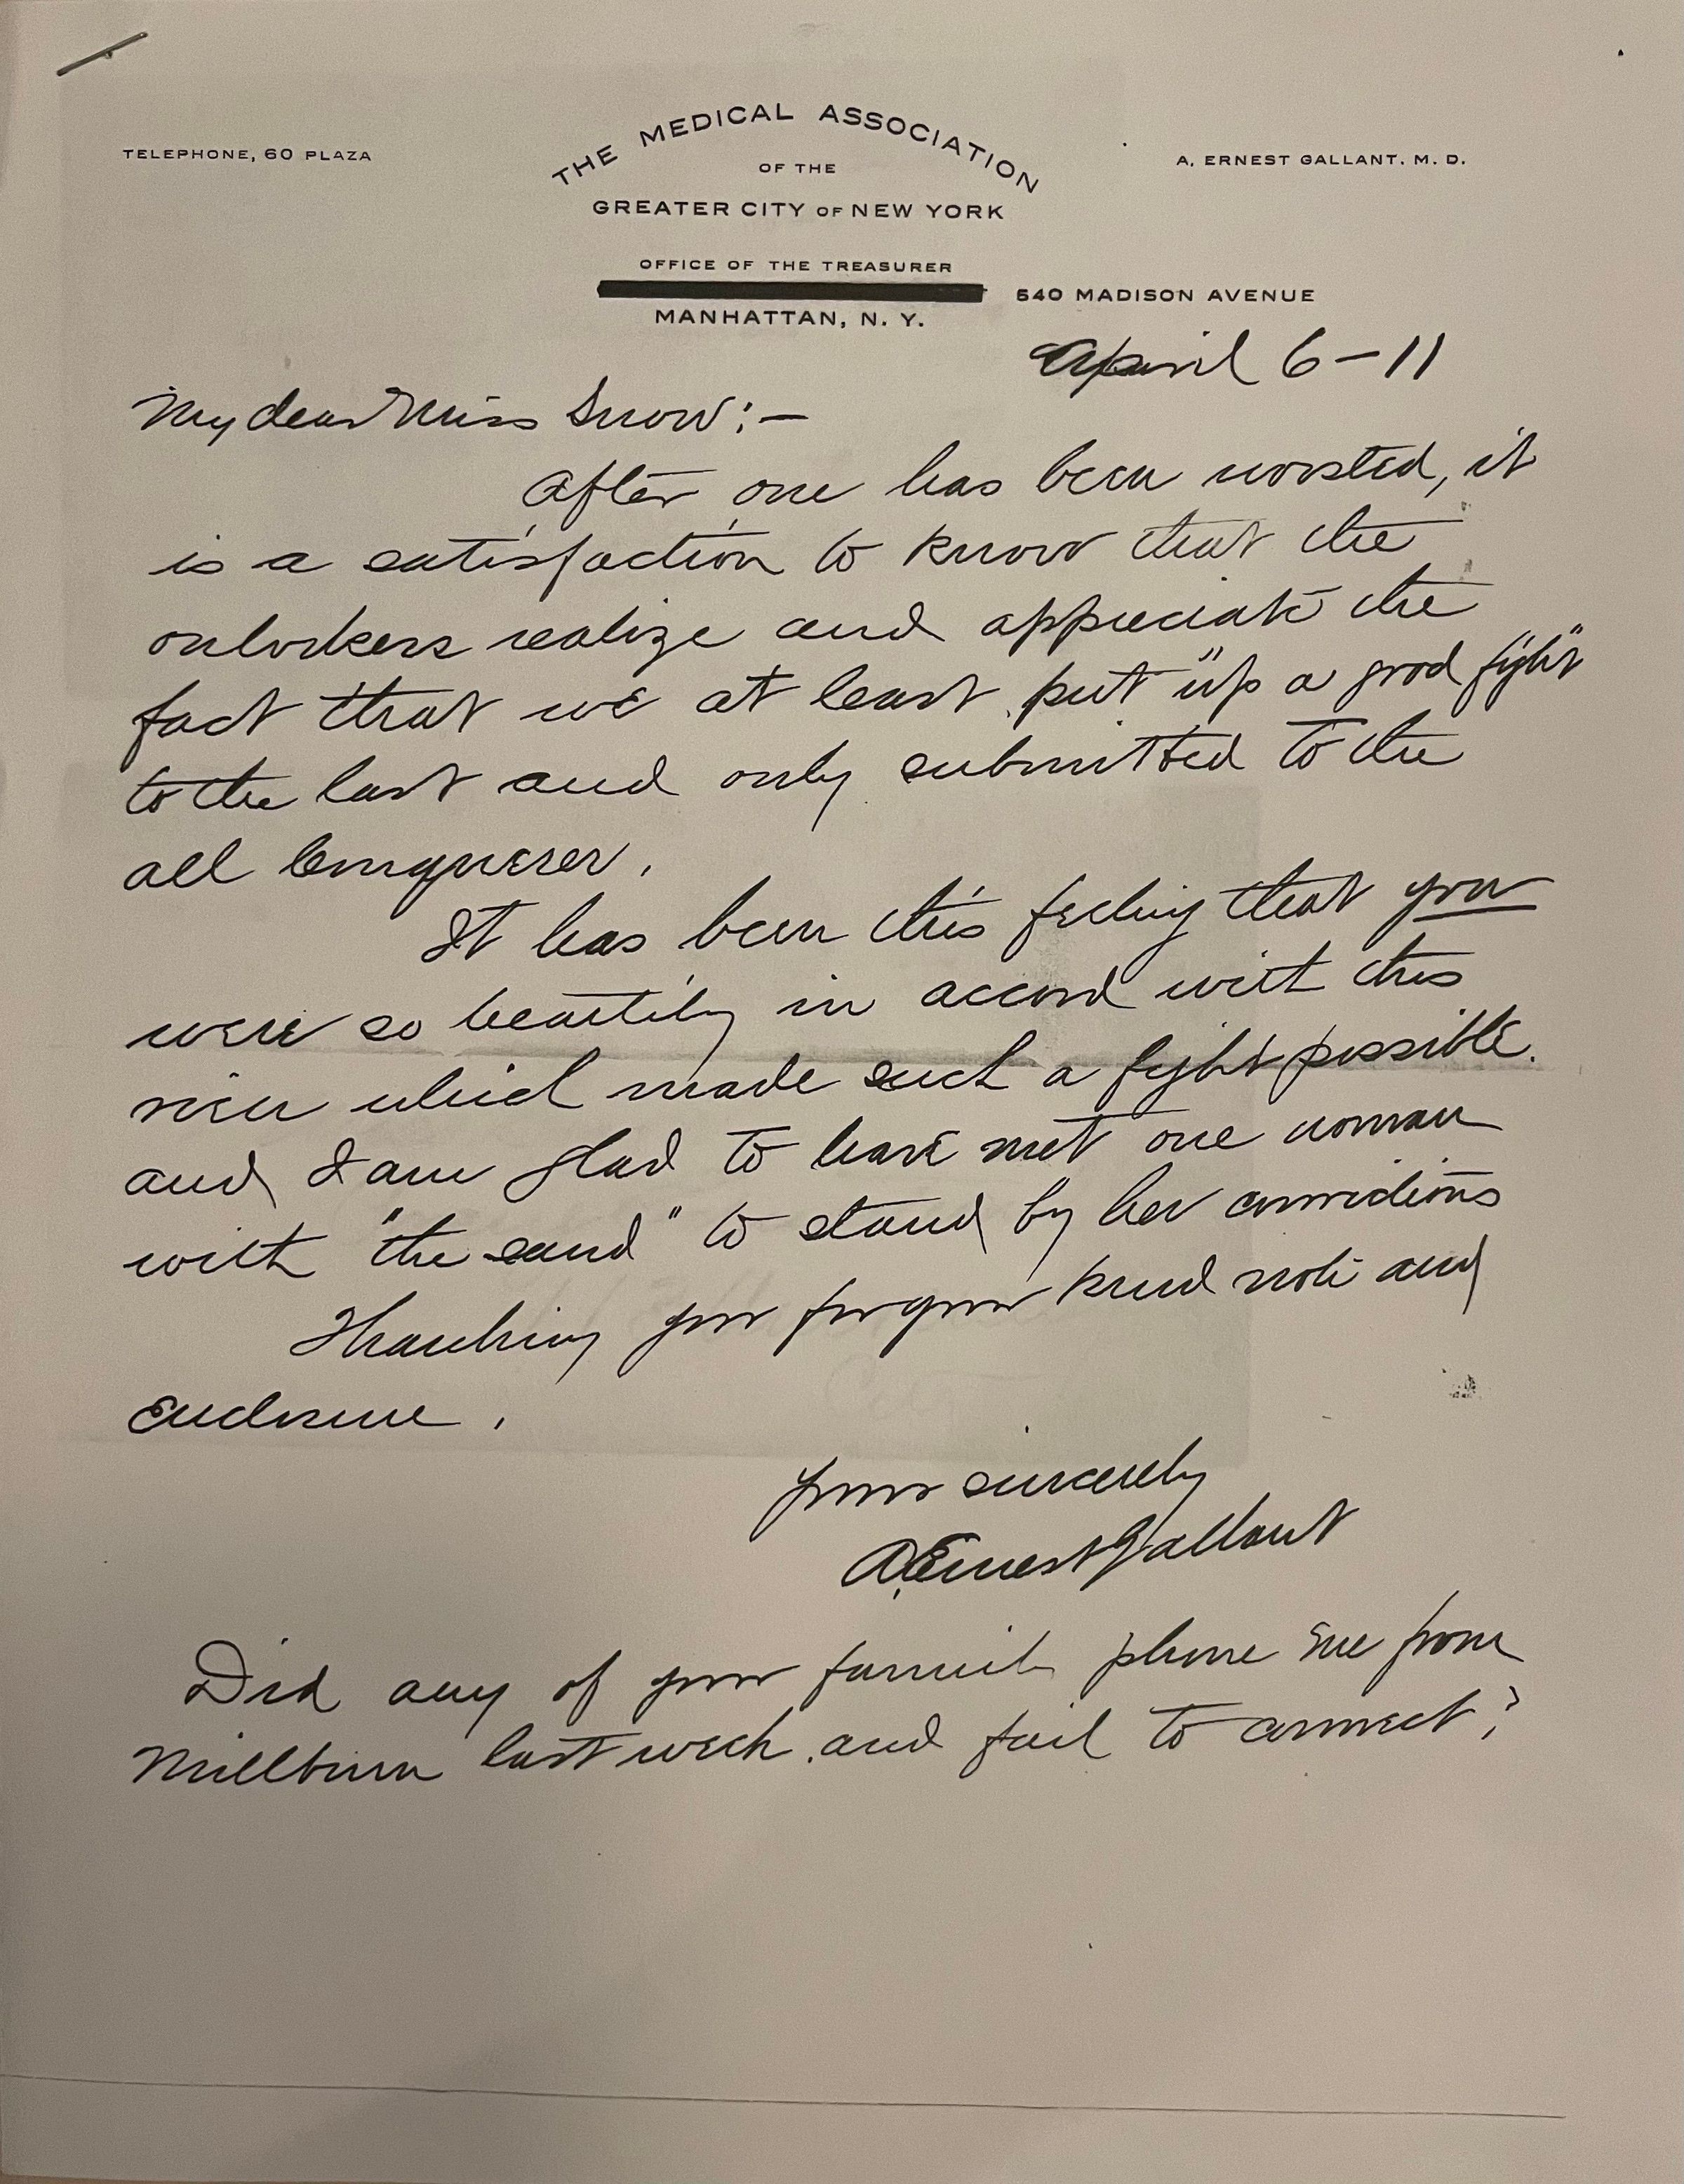 TELEPHONE, 60 PLAZA
THE MEDICAL ASSOCIATION
OF THE
GREATER CITY OF NEW YORK
A. ERNEST GALLANT. M. D.
OFFICE OF THE TREASURER
540 MADISON AVENUE
MANHATTAN, N. Y.
April 6-11
My dear Miss Snow:-
After one has been worsted, it
is a satisfaction to know that the
onlookers realize and appreciate the
fact that we at least put "up a good fight"
to the last and only submitted to the
all Conquerer.
It has been this feeling that you
were so heartily in accord with this
view which made such a fight possible.
and I am glad to have met one woman
with "the sand" to stand by her convictions
Thanking you for your kind note and
Enclosure.
Yours sincerely
A. Ernest Gallant
Did any of your family phone me from
Millburn last week and fail to connect?